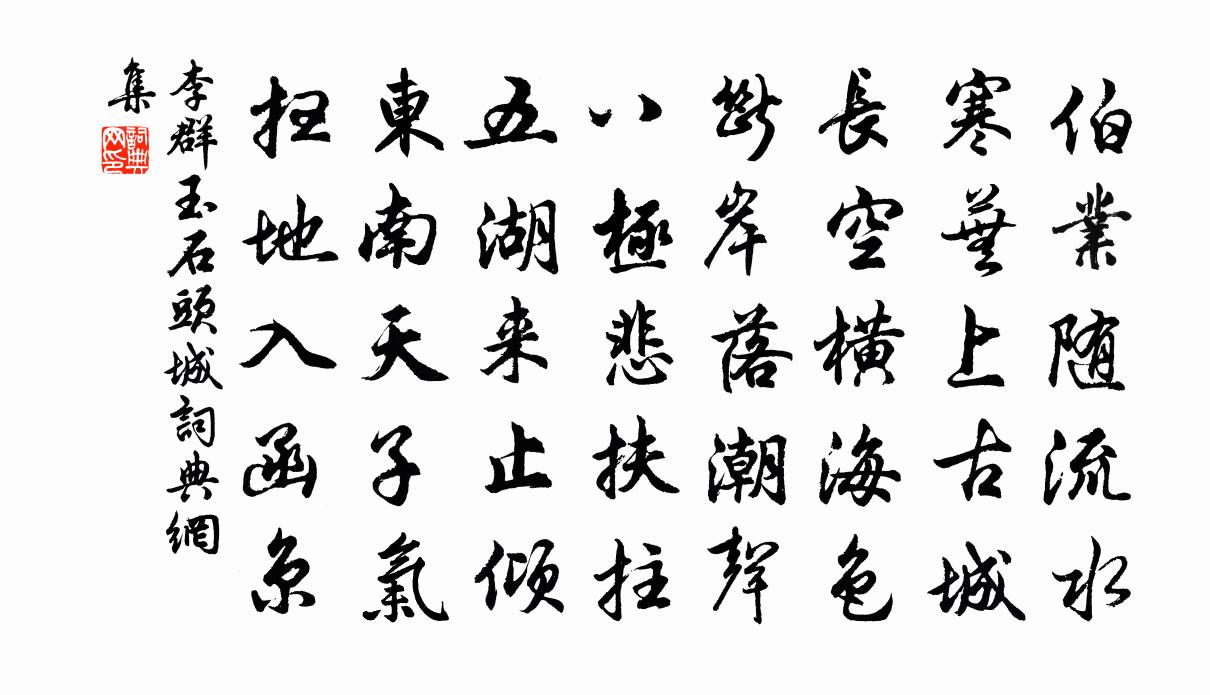 伯業随流水
寒蕪上古城
長空横海色
斷岸落潮聲
八極悲扶拄
五湖来止傾
東南天子氣
扫地入函京
李群玉石頭城詞典網
集
詞典網印